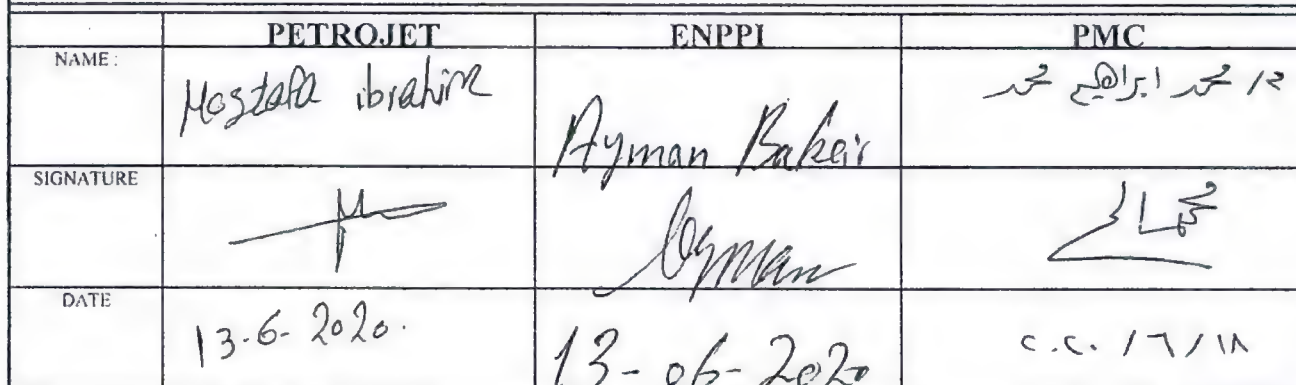 PETROJET ENPPI PMC
NAME : Mostafa ibrahim Ayman Bakeir م/ محمد ابراهيم محمد
SIGNATURE Ayman
DATE 13-6-2020. 13-06-2020 ١٨/٦/٢٠٢٠